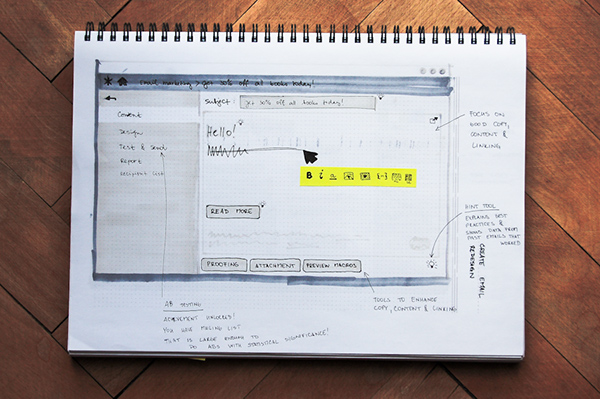 Email marketing > Get 30% off all books today!
Subject: Get 30% off all books today!
Content
Design
Test & Send
Report
Recipient List
Hello!
B i a
READ MORE
PROOFING
ATTACHMENT
PREVIEW MACROS
FOCUS ON
GOOD COPY,
CONTENT &
LINKING
HINT TOOL
EXPLAINS BEST
PRACTISES &
SHOWS DATA FROM
PAST EMAILS THAT
WORKED
CREATE EMAIL
REDESIGN
TOOLS TO ENHANCE
COPY, CONTENT & LINKING
AB TESTING
ACHIEVEMENT UNLOCKED!
YOU HAVE MAILING LIST
THAT IS LARGE ENOUGH TO
DO ABS WITH STATISTICAL SIGNIFICANCE!